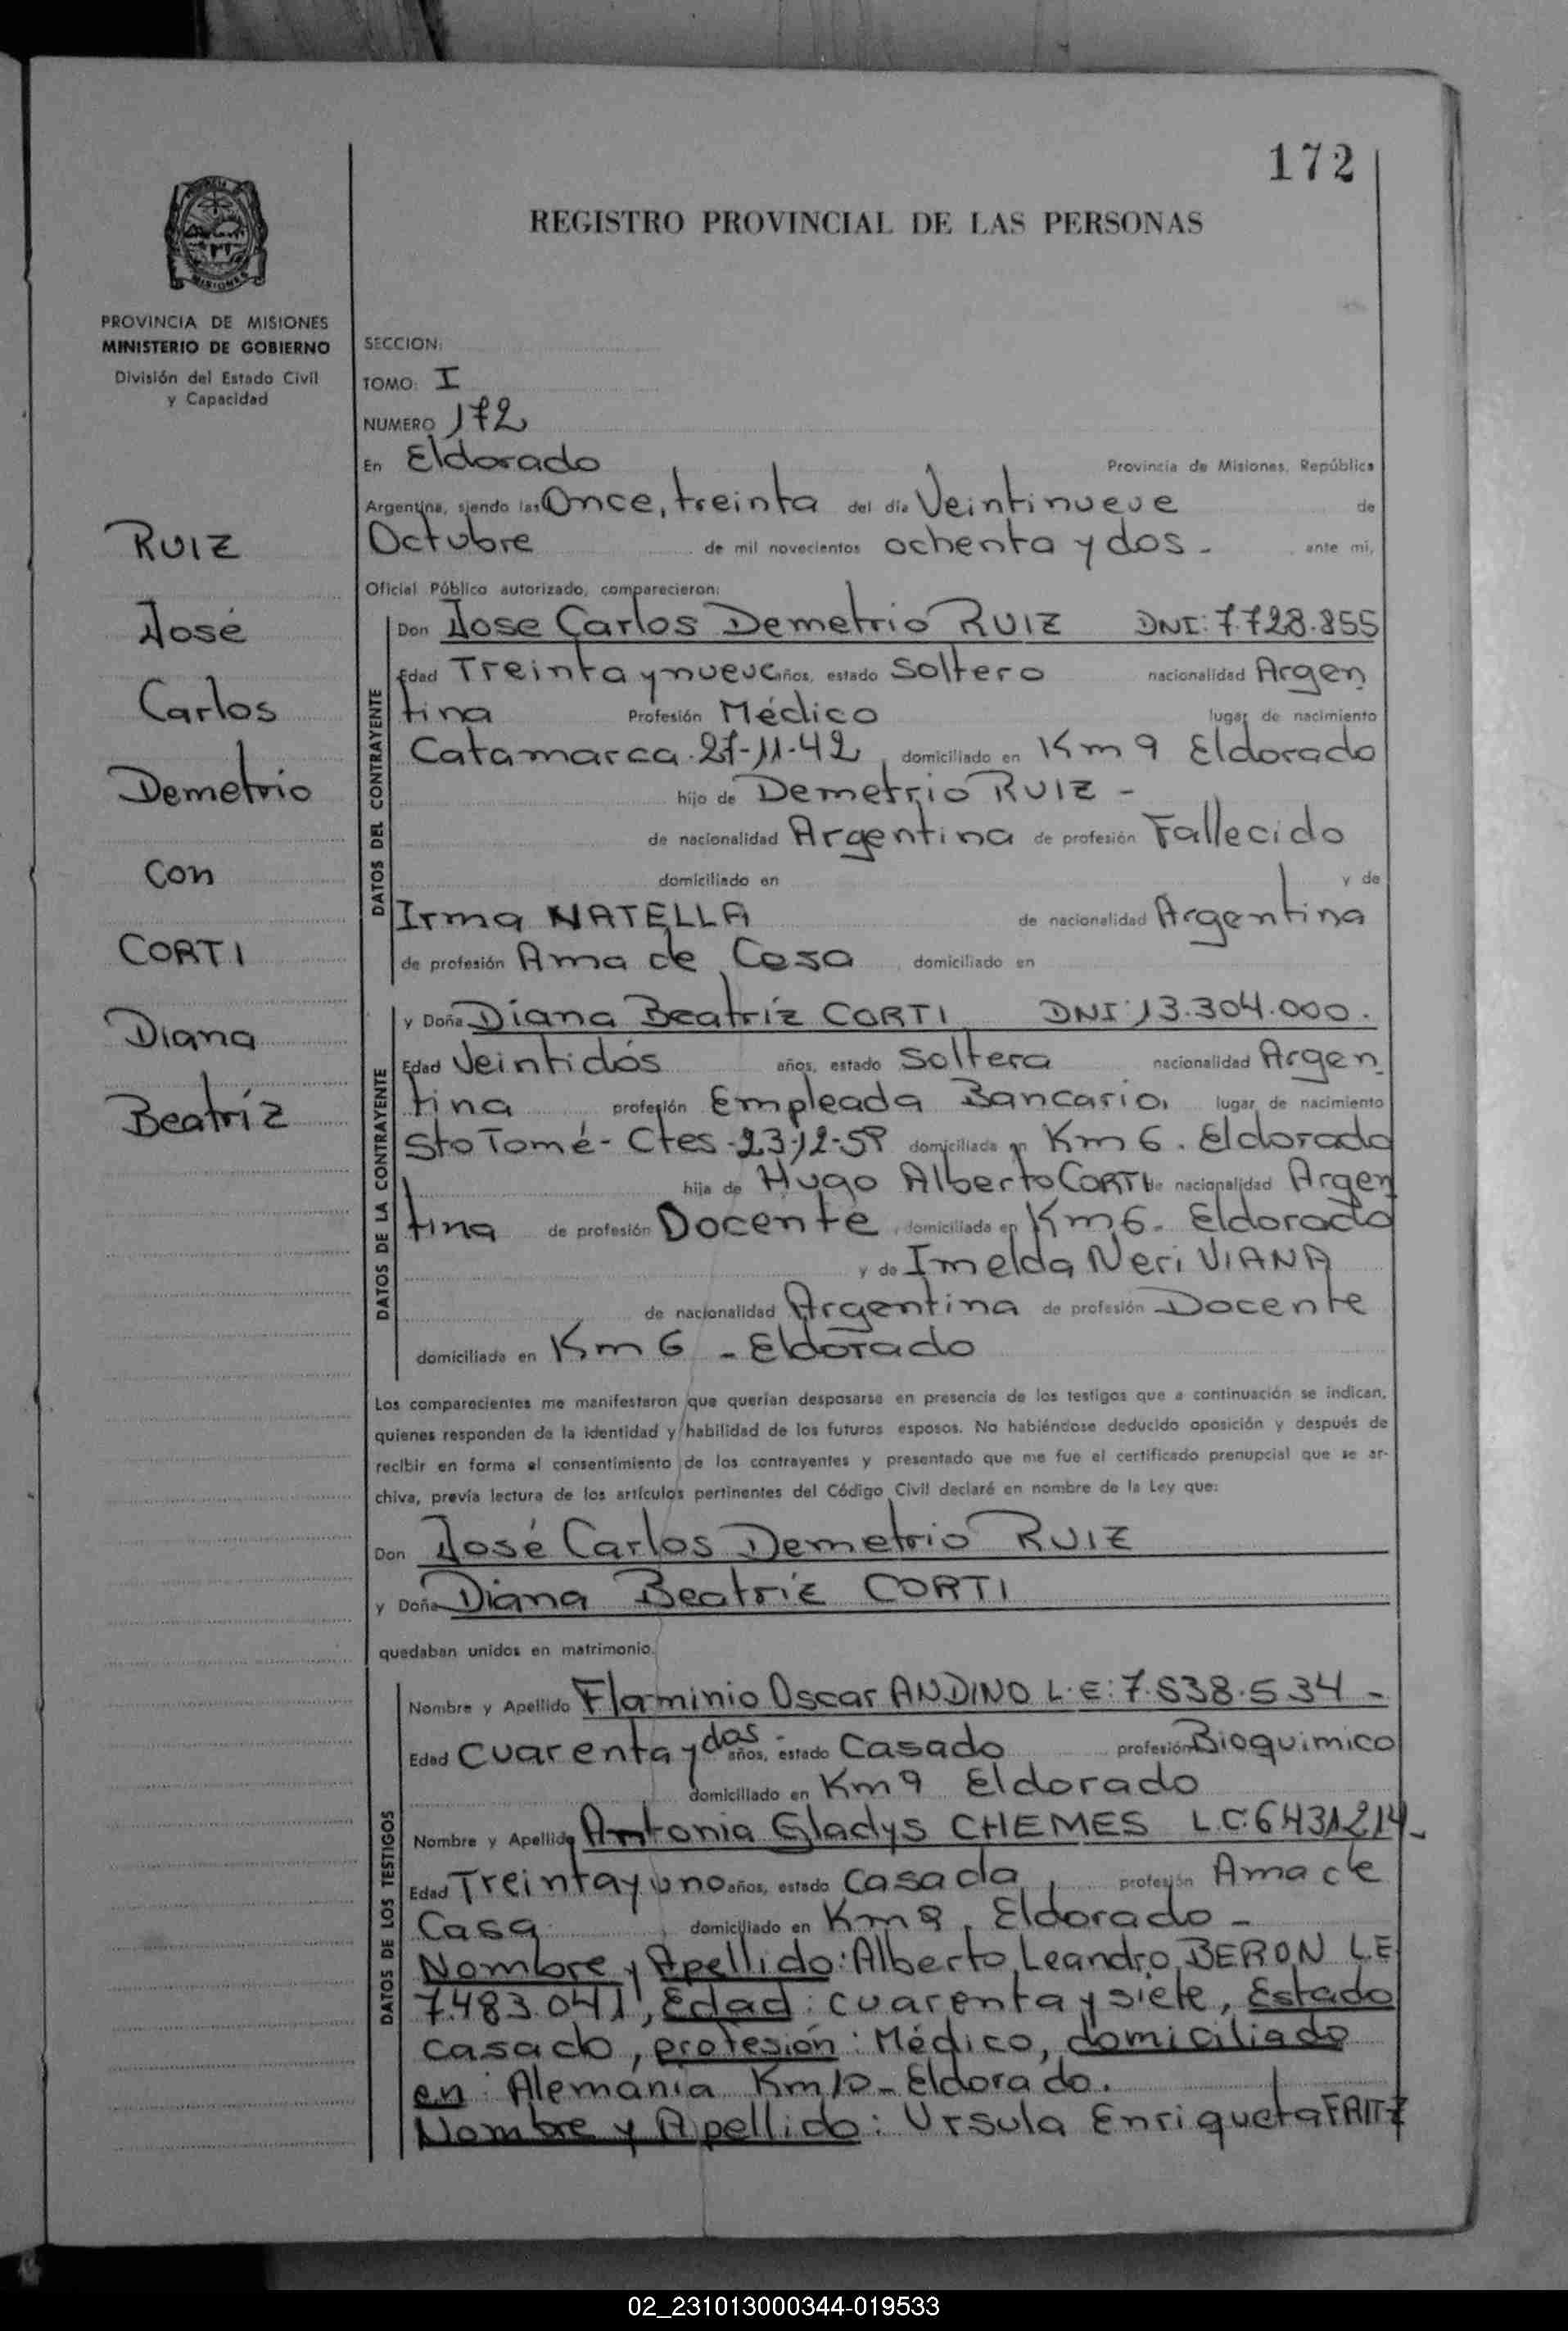 172
REGISTRO PROVINCIAL DE LAS PERSONAS
MISIONES
PROVINCIA DE MISIONES
MINISTERIO DE GOBIERNO
División del Estado Civil
y Capacidad
RUIZ
José
Carlos
Demetrio
con
CORTI
Diana
Beatríz
SECCION:
TOMO: I
NUMERO 172
En Eldorado Provincia de Misiones, República
Argentina, siendo las Once, treinta del día Veintinueve de
Octubre de mil novecientos ochenta y dos - ante mi,
Oficial Público autorizado, comparecieron:
DATOS DEL CONTRAYENTE
Don Jose Carlos Demetrio RUIZ DNI: 7.728.855
Edad Treinta y nueve años, estado Soltero nacionalidad Argen
tina Profesión Médico lugar de nacimiento
Catamarca. 27-11-42, domiciliado en Km 9 Eldorado
hijo de Demetrio RUIZ -
de nacionalidad Argentina de profesión Fallecido
domiciliado en y de
Irma NATELLA de nacionalidad Argentina
de profesión Ama de Casa, domiciliado en
DATOS DE LA CONTRAYENTE
y Doña Diana Beatríz CORTI DNI: 13.304.000.
Edad Veintidós años, estado Soltera nacionalidad Argen
tina profesión Empleada Bancario, lugar de nacimiento
Sto Tomé - Ctes - 23-12-59 domiciliada en Km 6. Eldorado
hija de Hugo Alberto CORTI de nacionalidad Argen
tina de profesión Docente, domiciliada en Km 6- Eldorado
y de Imelda Neri VIANA
de nacionalidad Argentina de profesión Docente
domiciliada en Km 6 - Eldorado
Los comparecientes me manifestaron que querían desposarse en presencia de los testigos que a continuación se indican,
quienes responden de la identidad y habilidad de los futuros esposos. No habiéndose deducido oposición y después de
recibir en forma el consentimiento de los contrayentes y presentado que me fue el certificado prenupcial que se ar-
chiva, previa lectura de los artículos pertinentes del Código Civil declaré en nombre de la Ley que:
Don José Carlos Demetrio RUIZ
y Doña Diana Beatríz CORTI
quedaban unidos en matrimonio.
DATOS DE LOS TESTIGOS
Nombre y Apellido Flaminio Oscar ANDINO L.E: 7.838.534 -
Edad Cuarenta y dos - años, estado Casado profesión Bioquimico
domiciliado en Km 9 Eldorado
Nombre y Apellido Antonia Gladys CHEMES L.C: 6431214 -
Edad Treinta y uno años, estado casada, profesión Ama de
Casa domiciliado en Km 9, Eldorado -
Nombre y Apellido: Alberto Leandro BERON L.E
7.483.041, Edad: cuarenta y siete, Estado
casado, profesión: Médico, domiciliado
en: Alemania Km 10 - Eldorado.
Nombre y Apellido: Ursula Enriqueta FAITZ
02_231013000344-019533